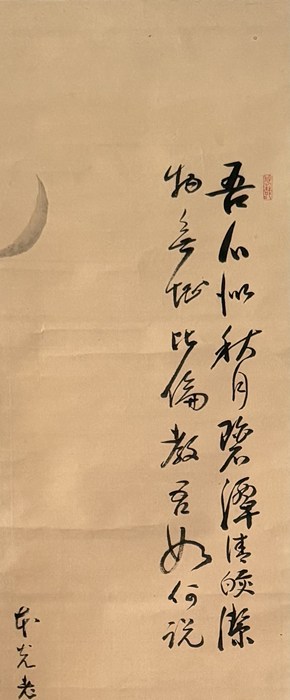 吾心似秋月碧潭清皎潔
物無堪比倫教吾如何說